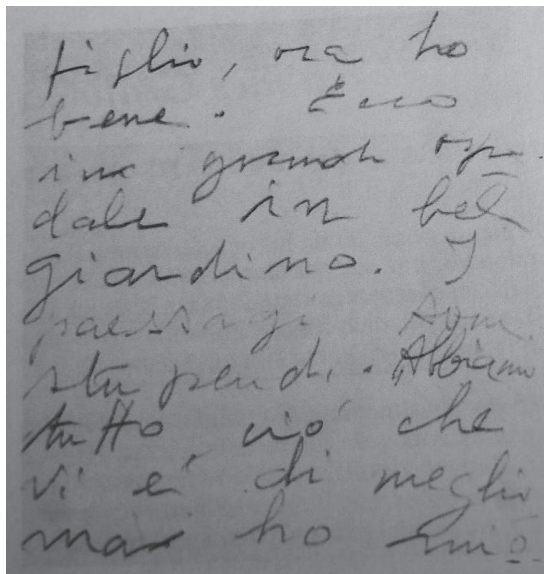 figlio, ora ho
bene. Ecco
in grande ospe-
dale in bel
giardino. I
paesagi sono
stupendi. Abbiamo
tutto ciò che
vi è di meglio
ma ho